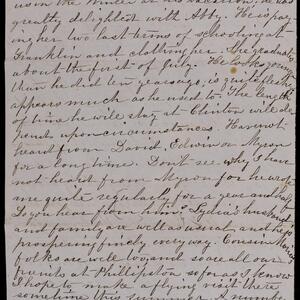 us in the winter in his vacation, he was
greatly delighted with Abby. He is pay
in her two last terms of schooling at
Franklin and clothing her. She graduates
about the first of July. He looks younger
than he did ten years ago, is quite fleshy
appears much as he used to. The length
of time he will stay at Clinton will de
pend upon circumstances. Have not
heard from David, Edwin or Myron
for a long time. Don't see why I have
not heard from Myron for he wrote
me quite regularly for a year and a half
Do you hear from him? Lydia's husband
and family are well as usual and he is
prospering finely every way. Cousin
folks are well too and so are all our
friends at Phillipston so far as I know
I hope to make a flying visit there
sometime this summer.